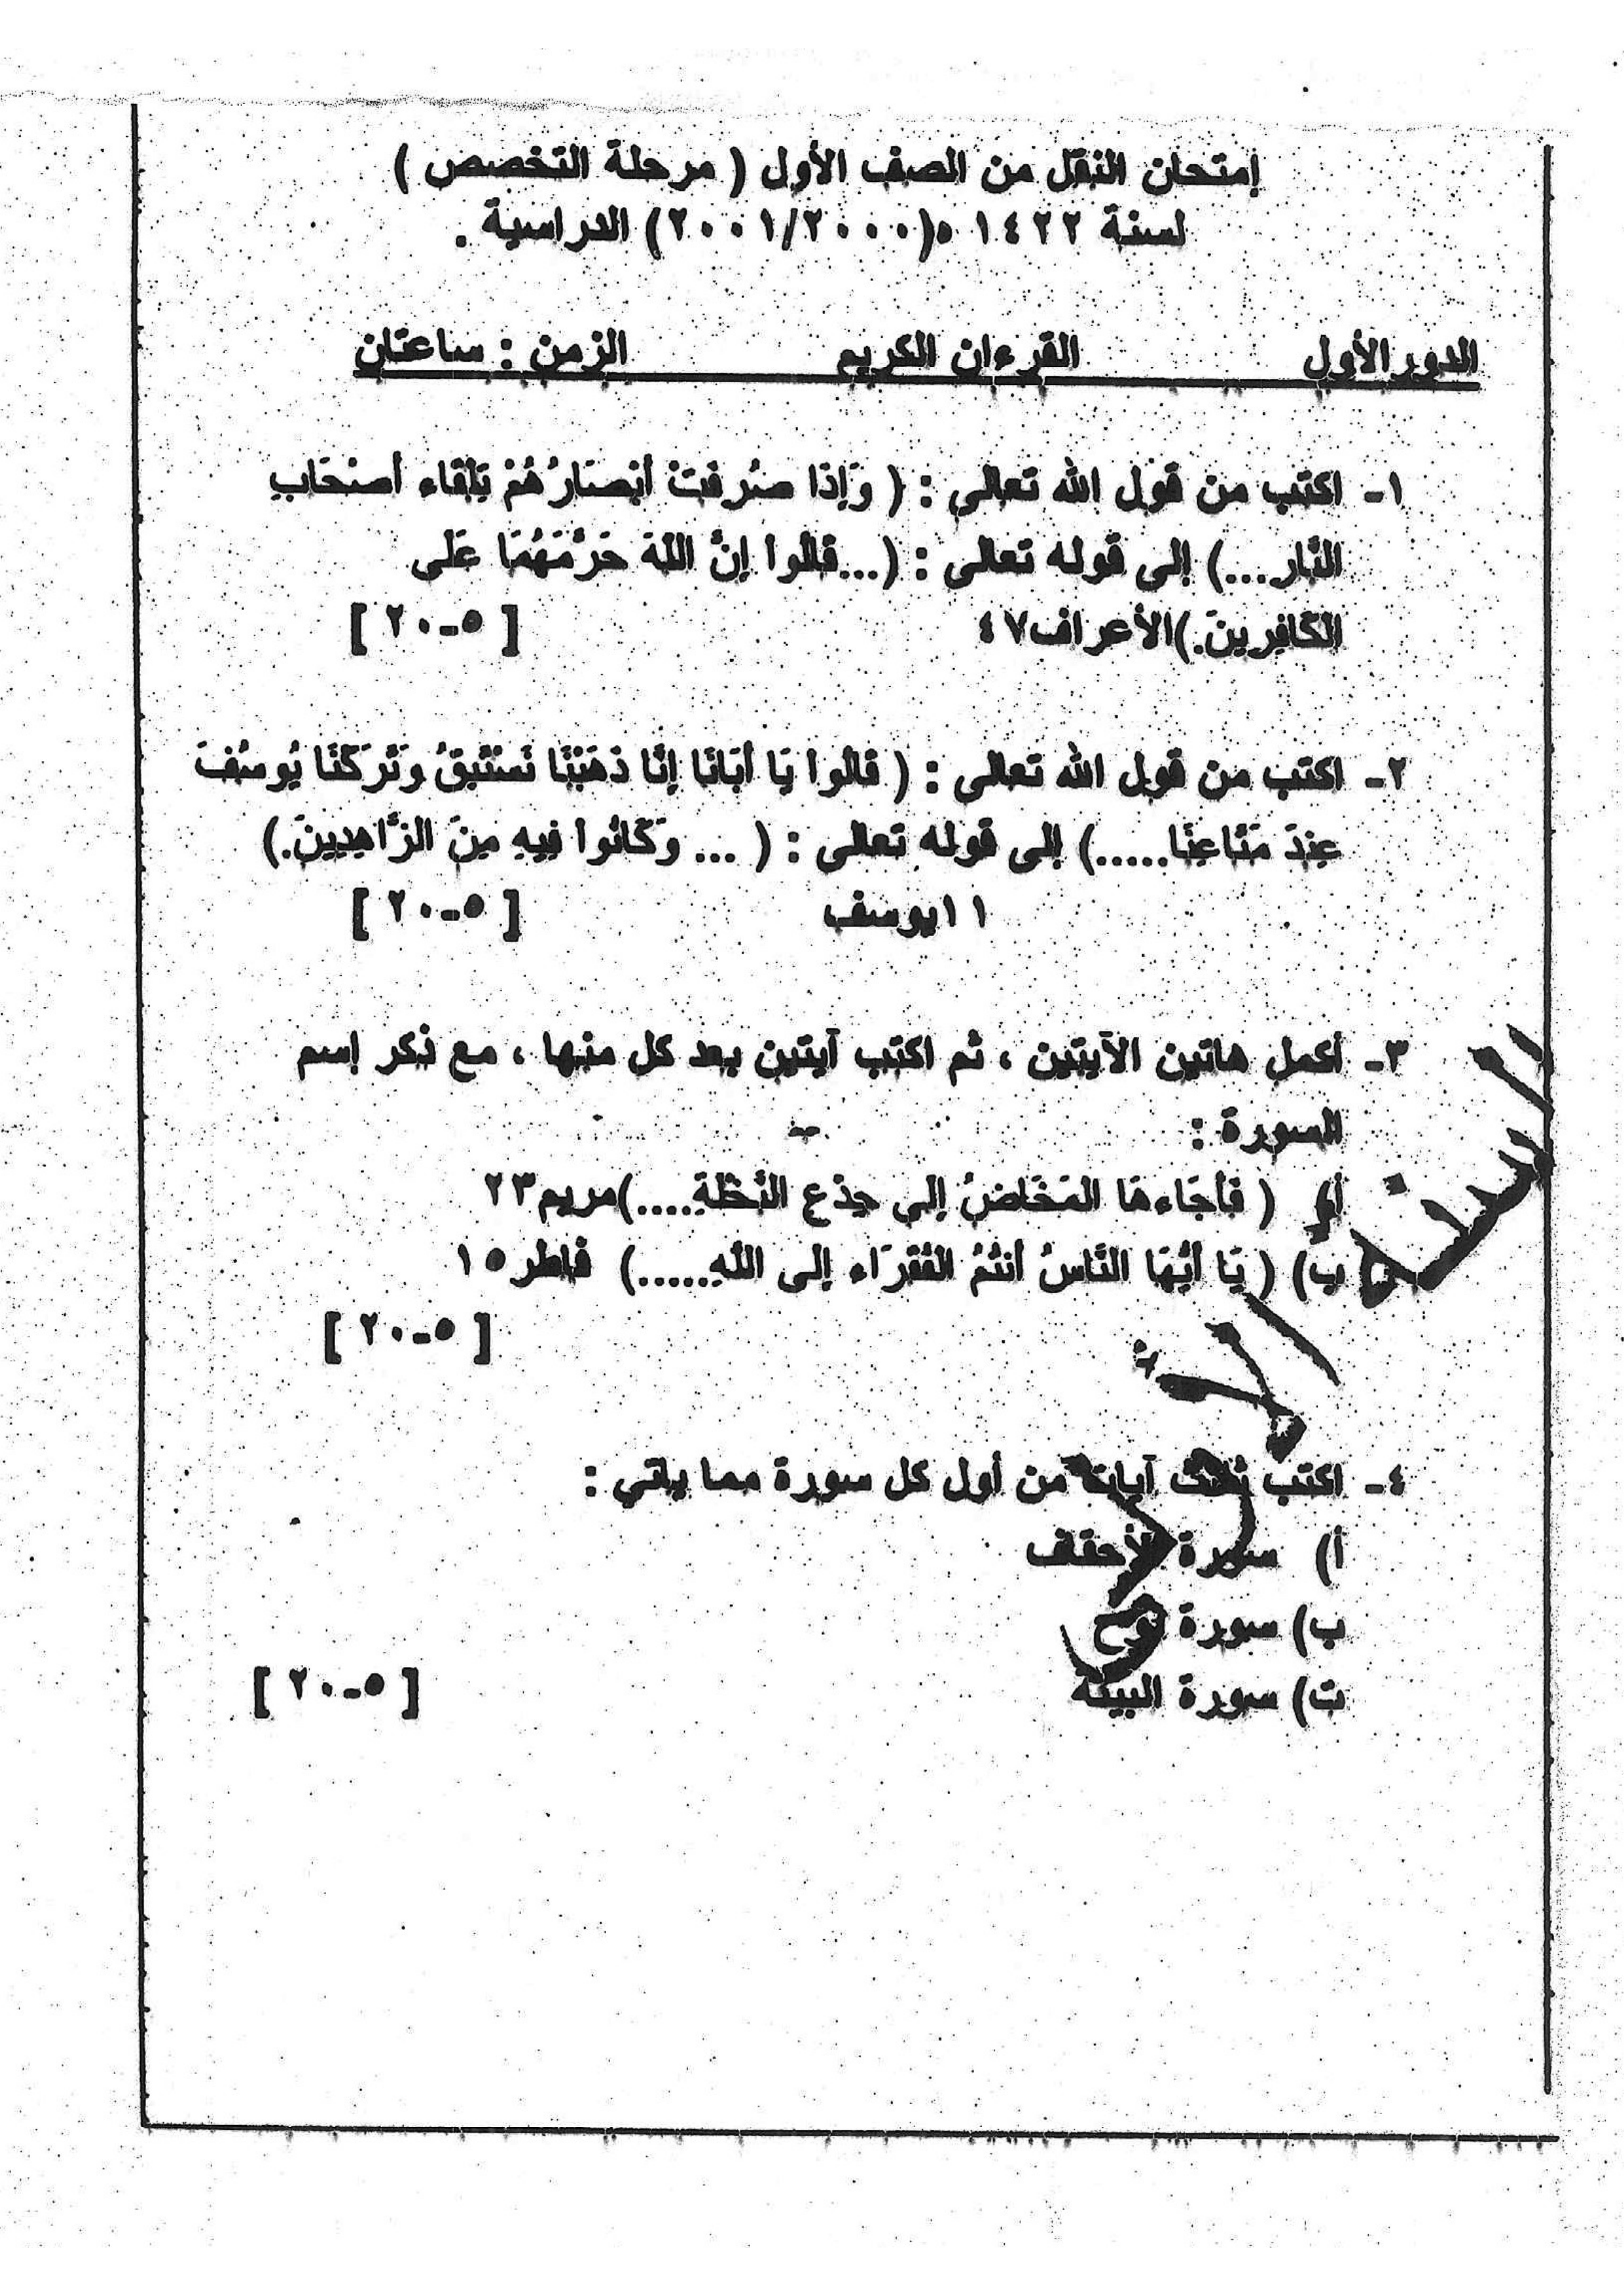 إمتحان النقل من الصف الأول ( مرحلة التخصص )
لسنة ١٤٢٢ ه(٢٠٠١/٢٠٠٠) الدراسية .
الدور الأول القرءان الكريم الزمن : ساعتان
١- اكتب من قول الله تعالى : ( وَإِذَا صُرِفَتْ أَبْصَارُهُمْ تِلْقَاء أَصْحَابِ
النَّار...) إلى قوله تعالى : (...قَالُوا إِنَّ اللَّهَ حَرَّمَهُمَا عَلَى
الكَافِرِينَ.)الأعراف٤٧ [ ٥-٢٠ ]
٢- اكتب من قول الله تعالى : ( قَالُوا يَا أَبَانَا إِنَّا ذَهَبْنَا نَسْتَبِقُ وَتَرَكْنَا يُوسُفَ
عِندَ مَتَاعِنَا.....) إلى قوله تعالى : ( ... وَكَانُوا فِيهِ مِنَ الزَّاهِدِينَ.)
١١يوسف [ ٥-٢٠ ]
٣- أكمل هاتين الآيتين ، ثم اكتب آيتين بعد كل منها ، مع ذكر إسم
السورة :
أ) ( فَأَجَاءهَا المَخَاضُ إِلَى جِذْعِ النَّخْلَةِ....)مريم٢٣
ب) ( يَا أَيُّهَا النَّاسُ أَنتُمُ الفُقَرَاء إِلَى اللَّهِ.....) فاطر١٥
[ ٥-٢٠ ]
٤- اكتب ثلاث آيات من أول كل سورة مما يأتي :
أ) سورة الأحقاف
ب) سورة نوح
ت) سورة البينة [ ٥-٢٠ ]